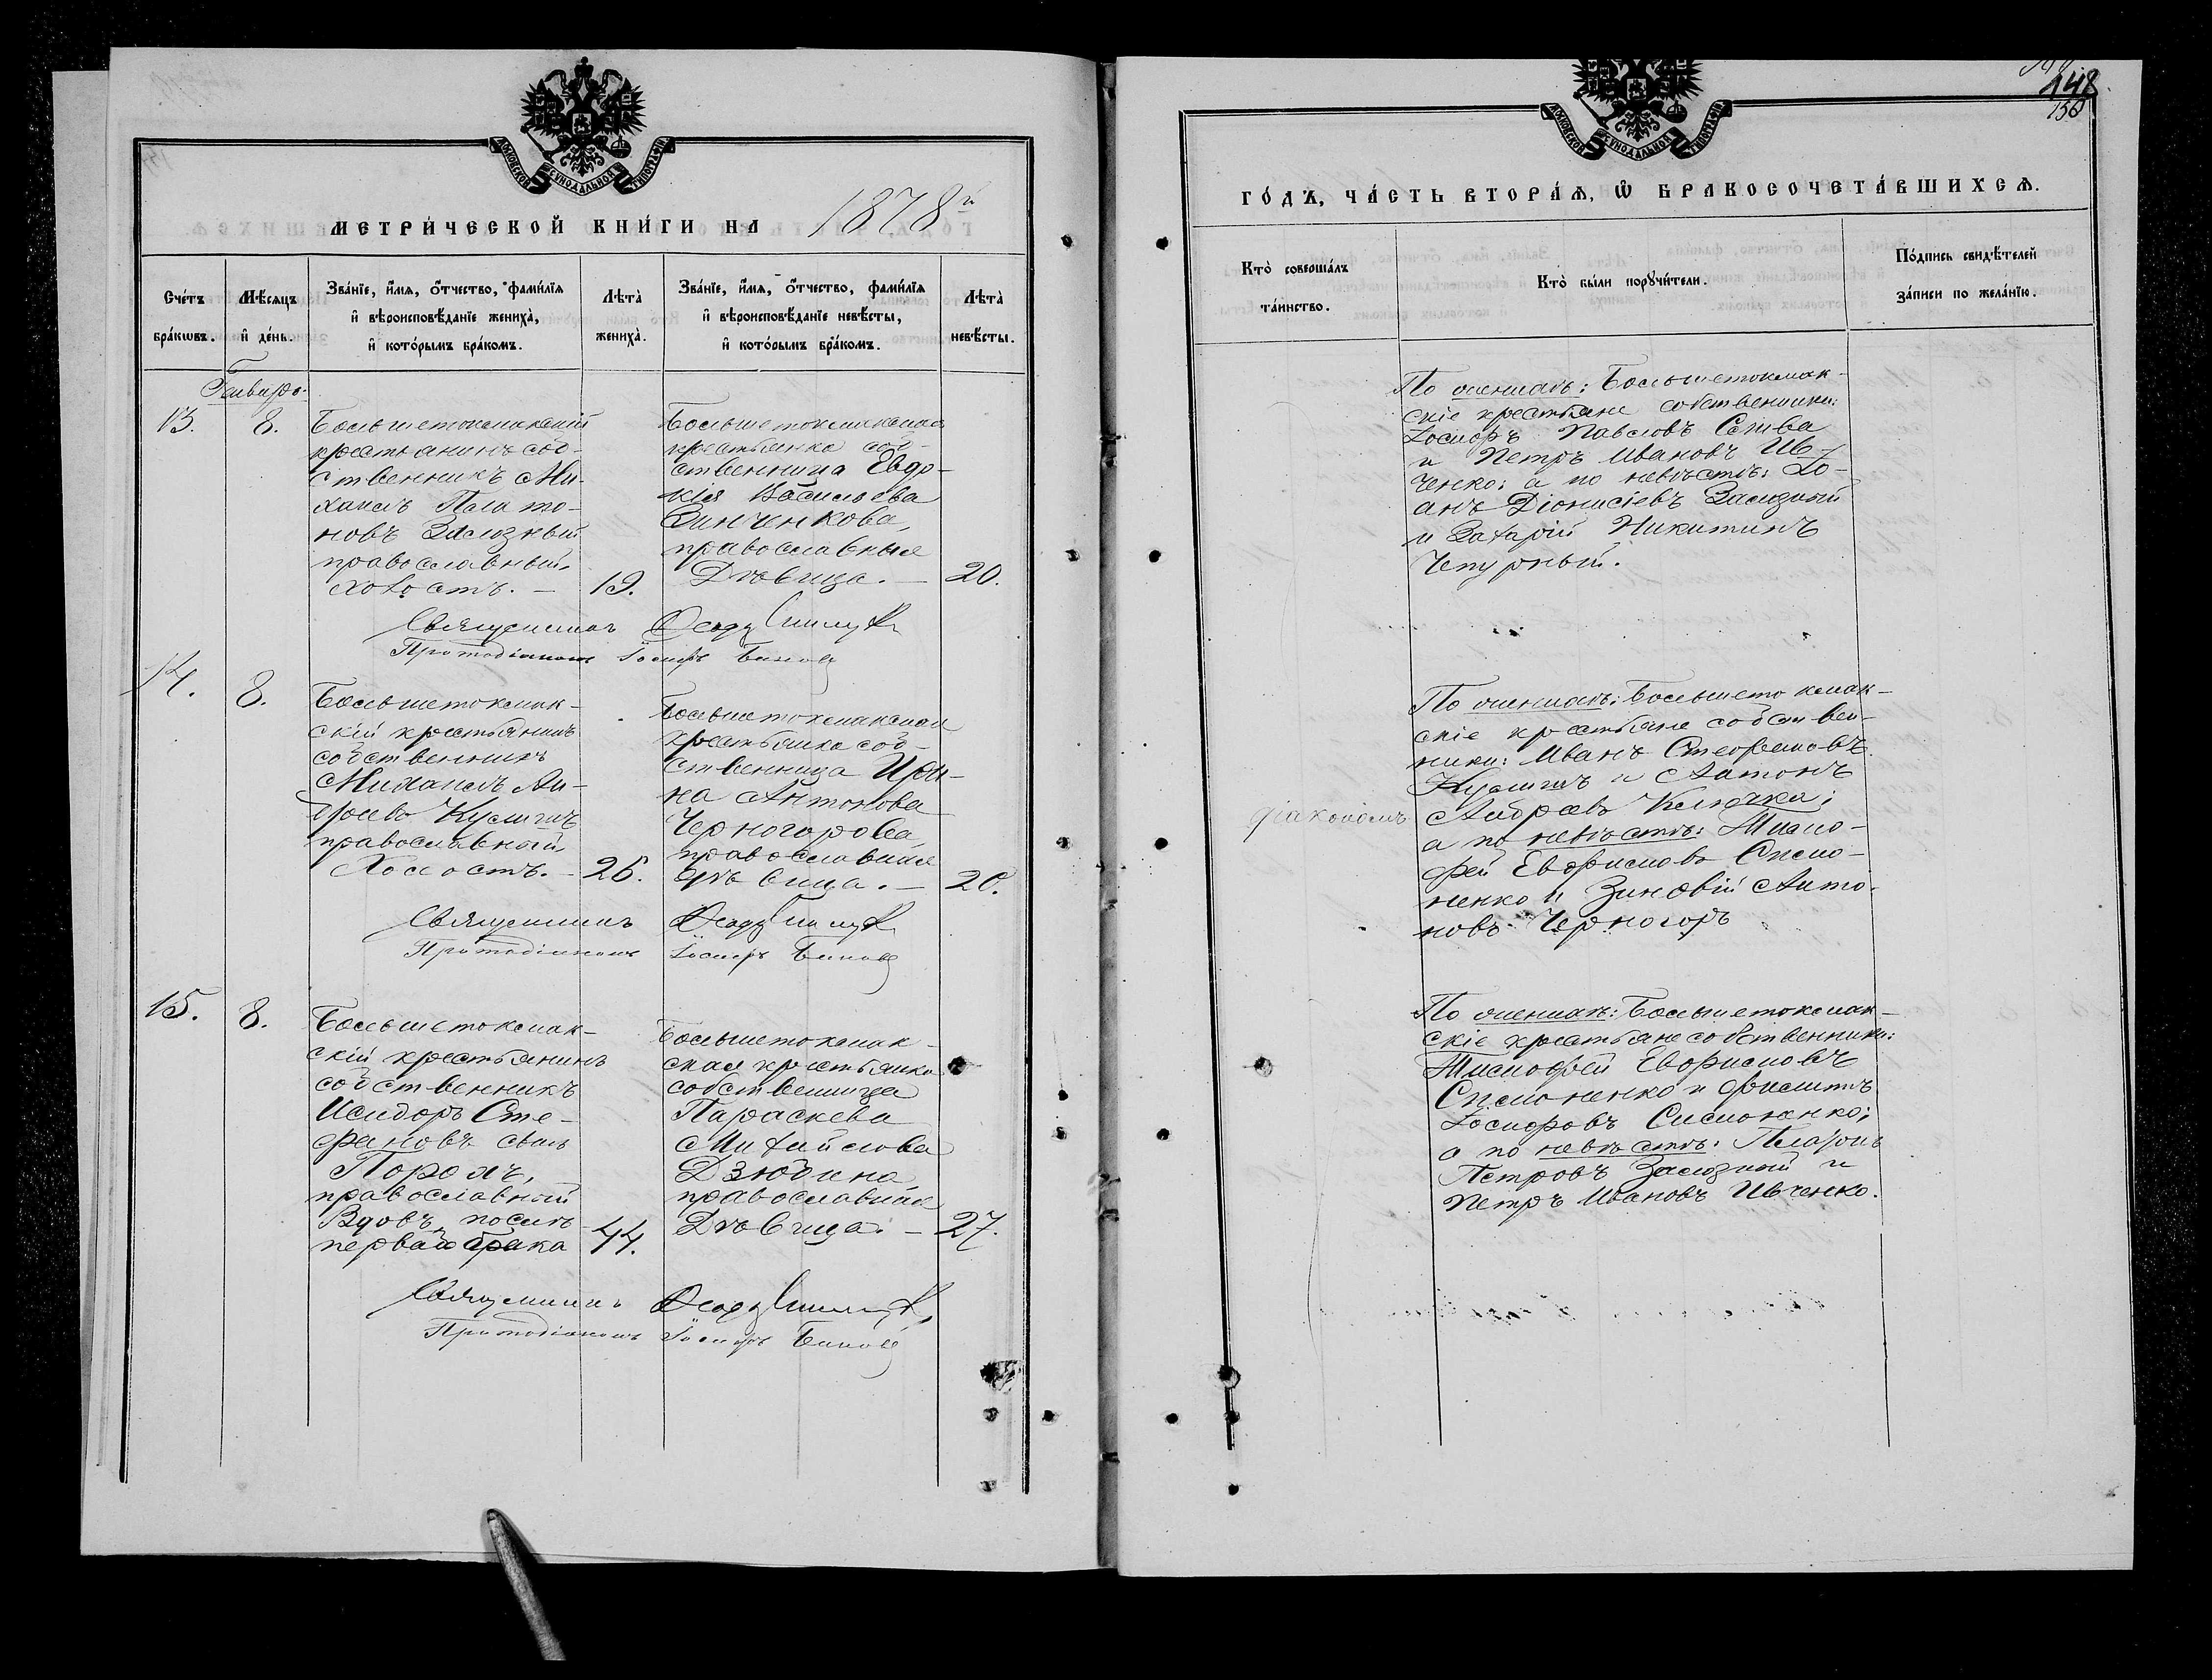 МОСКОВСКОЙ СѴНОДАЛЬНОЙ ТИПОГРАФІИ
МЕТРИ́ЧЕСКОЙ КНИ́ГИ НА 1878й
Сче́тъ бра́кѡвъ.
Мѣ́сяцъ и҆ де́нь.
Зва́нїе, и҆́мя, ѻ҆́тчество, фами́лїя
и҆ вѣроисповѣ́данїе жениха̀,
и҆ кото́рымъ бра́комъ.
Лѣта̀ жениха̀.
Зва́нїе, и҆́мя, ѻ҆́тчество, фами́лїя
и҆ вѣроисповѣ́данїе невѣ́сты,
и҆ кото́рымъ бра́комъ.
Лѣта̀ невѣ́сты.
Генваро.
13.
8.
Большетокмакскій
крестьянинъ соб-
ственникъ Ми-
хаилъ Плато-
новъ Зализный
православный,
холостъ. — 19.
Большетокмакская
крестьянка соб-
ственница Евдо-
кія Васильева
Зинченкова,
православныя
Дѣвица. — 20.
Священникъ
Протодіаконъ Іосифъ
14.
8.
Большетокмак-
скій крестьянинъ
собственникъ
Михаилъ Ан-
дреевъ Кулишъ
православный,
Холостъ. — 26.
Большетокмакская
крестьянка соб-
ственница Ири-
на Антонова
Черногорова,
православная
дѣвица. — 20.
Священникъ
Протодіаконъ Іосифъ
15.
8.
Большетокмак-
скій крестьянинъ
собственникъ
Исидоръ Сте-
фановъ сынъ
Порохъ,
православный
Вдовъ послѣ
перваго брака 44.
Большетокмак-
ская крестьянка
собственница
Параскева
Михайлова
Дзюбина,
православная
Дѣвица. — 27.
Священникъ
Протодіаконъ Іосифъ
148
150
МОСКОВСКОЙ СѴНОДАЛЬНОЙ ТИПОГРАФІИ
ГО́ДЪ, ЧА́СТЬ ВТОРА́Я, Ѡ҆ БРАКОСОЧЕТА́ВШИХСЯ.
Кто̀ соверша́лъ
та́инство.
Кто̀ бы́ли порꙋчи́тели.
По́дпись свидѣ́телей
за́писи по жела́нїю.
По женихѣ: Большетокмак-
скіе крестьяне собственники:
Іосифъ Павловъ
и Петръ Ивановъ Ив-
ченко; а по невѣстѣ: Іо-
анъ Діонисіевъ Зализный
и Захарій Никитинъ
Чепурный.
діакономъ
По женихѣ: Большетокмак-
скіе крестьяне собствен-
ники: Иванъ Стефановъ
Кулишъ и Антонъ
Андреевъ Клочка;
а по невѣстѣ: Тимо-
фей Евфимовъ
и Зиновій Анто-
новъ Черногоръ
По женихѣ: Большетокмак-
скіе крестьяне собственники:
Тимофей Евфимовъ
и Филиппъ
Іосифовъ
а по невѣстѣ: Иларіонъ
Петровъ Зализный и
Петръ Ивановъ Ивченко.